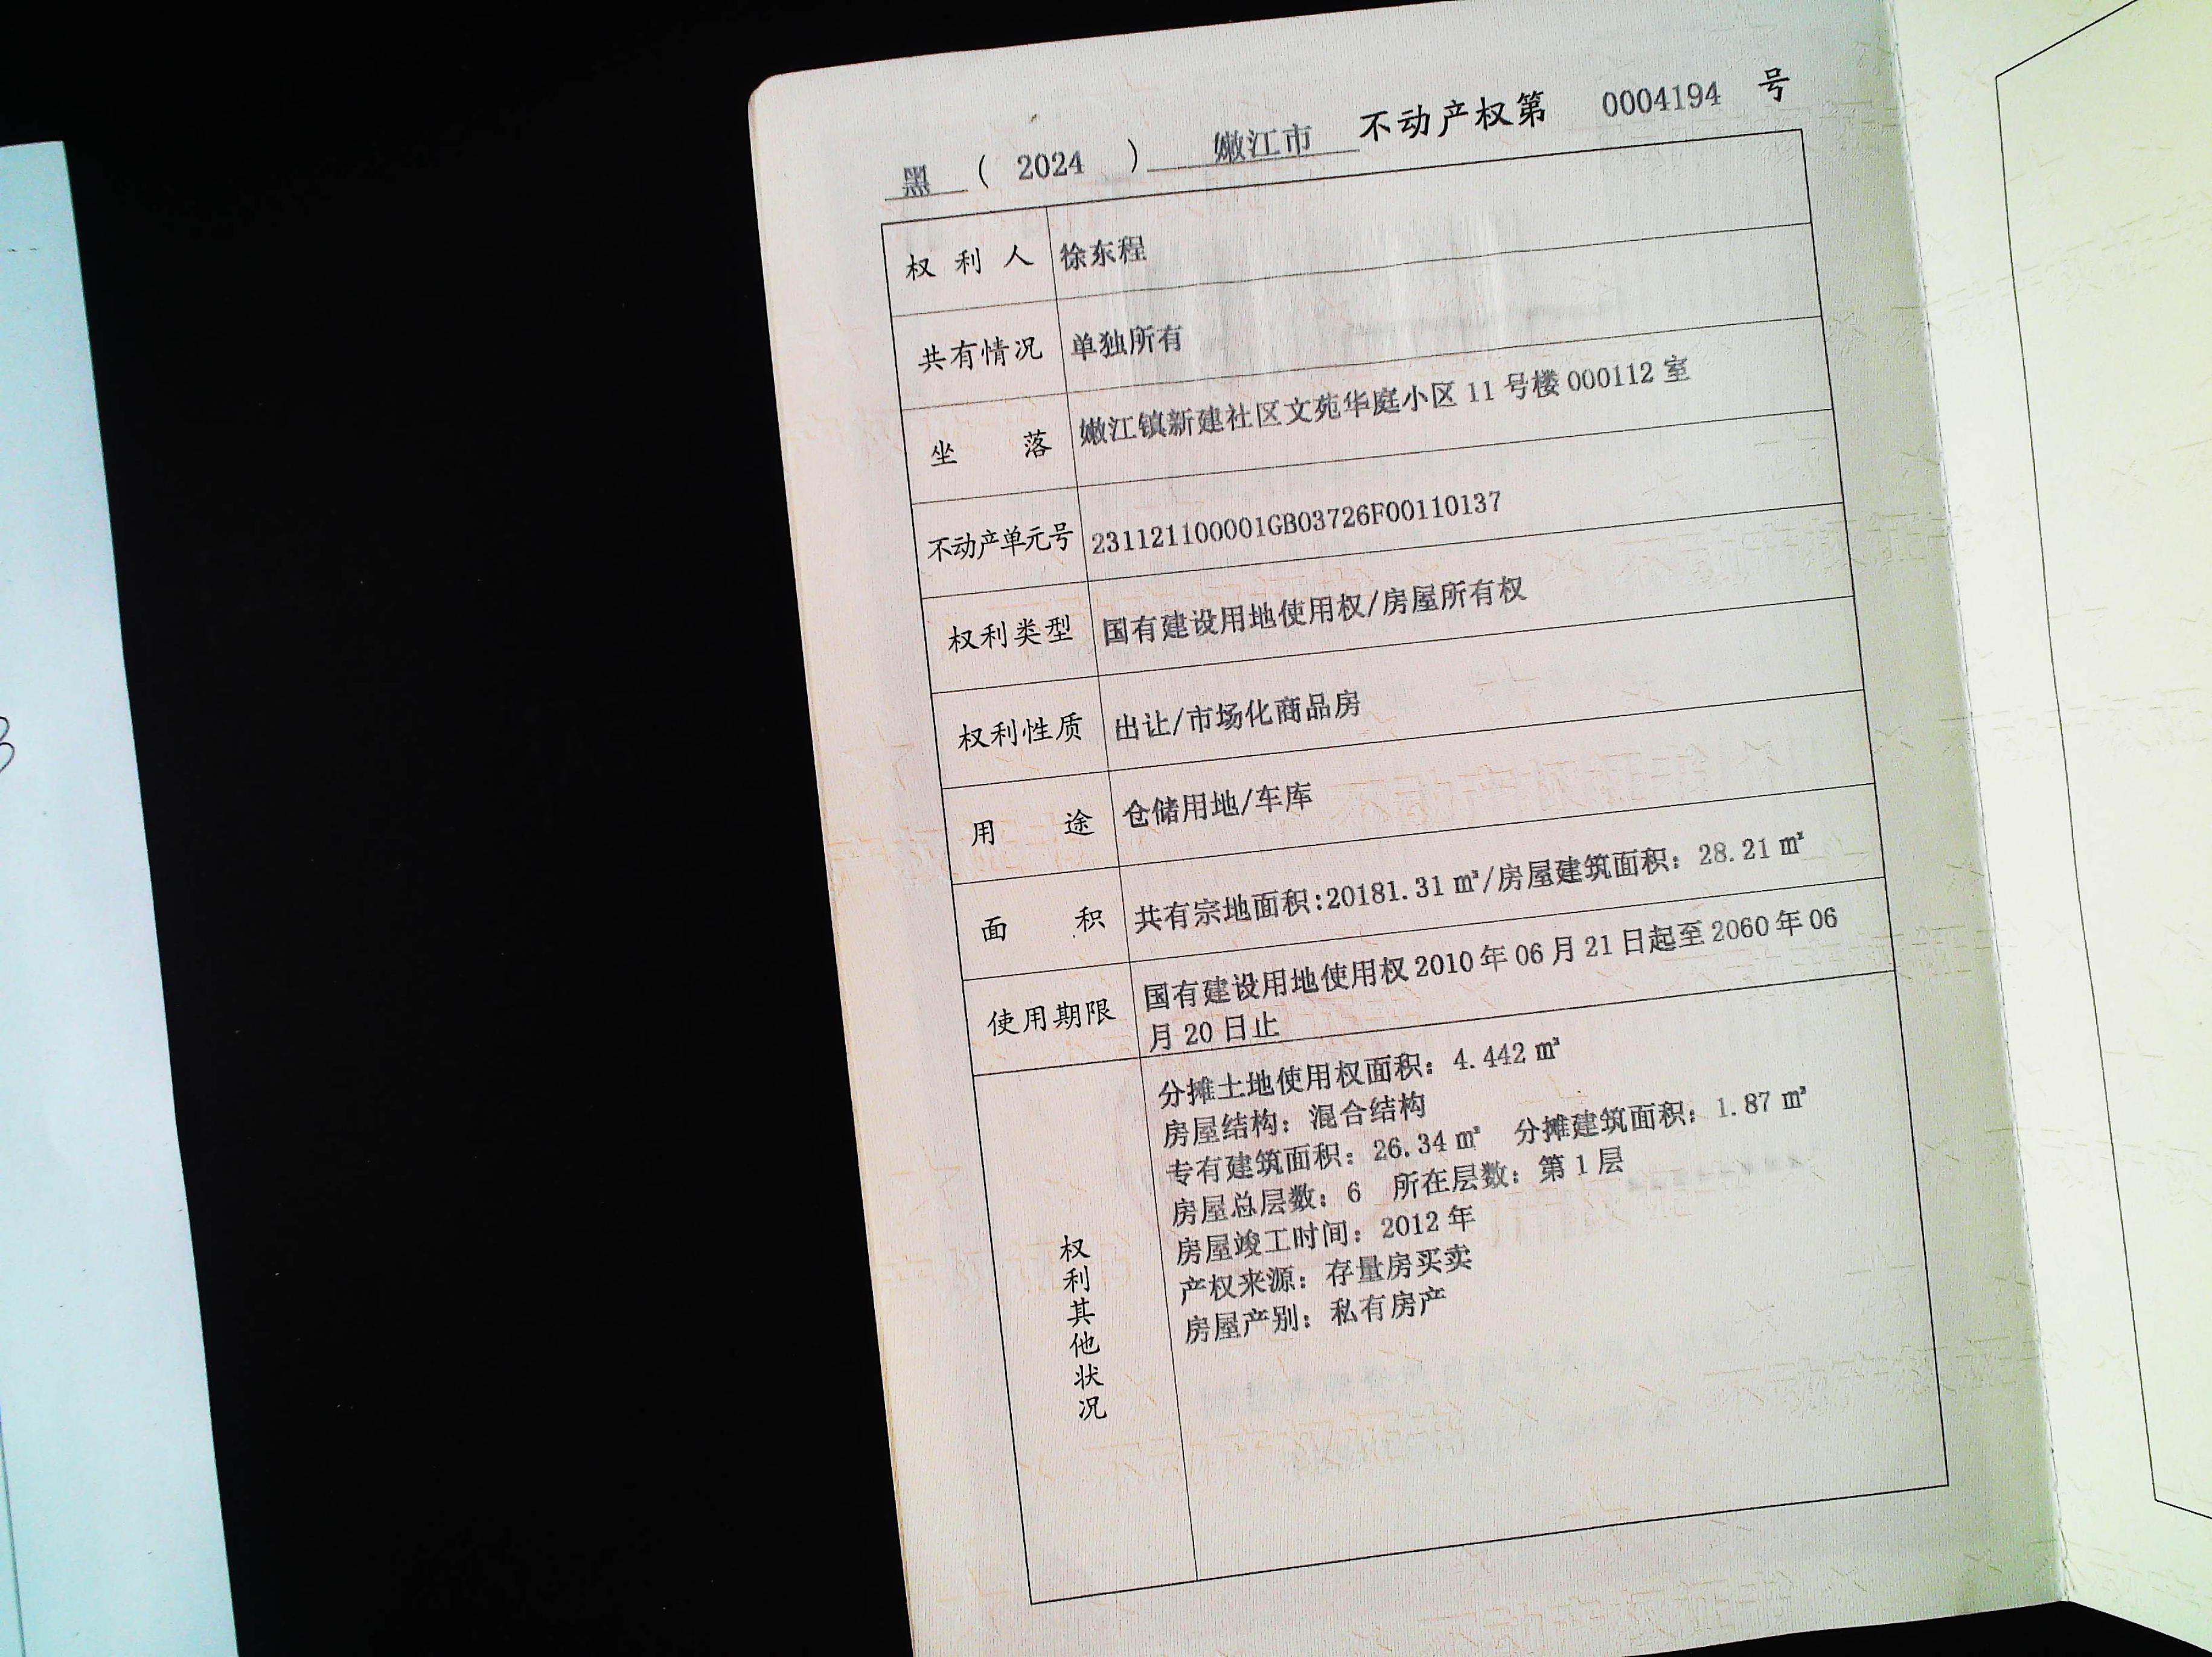 黑 ( 2024 ) 嫩江市 不动产权第 0004194 号
权利人 徐东程
共有情况 单独所有
坐落 嫩江镇新建社区文苑华庭小区 11 号楼 000112 室
不动产单元号 231121100001GB03726F00110137
权利类型 国有建设用地使用权/房屋所有权
权利性质 出让/市场化商品房
用途 仓储用地/车库
面积 共有宗地面积:20181.31 ㎡/房屋建筑面积：28.21 ㎡
使用期限 国有建设用地使用权 2010 年 06 月 21 日起至 2060 年 06
月 20 日止
权利其他状况
分摊土地使用权面积：4.442 ㎡
房屋结构：混合结构
专有建筑面积：26.34 ㎡ 分摊建筑面积：1.87 ㎡
房屋总层数：6 所在层数：第 1 层
房屋竣工时间：2012 年
产权来源：存量房买卖
房屋产别：私有房产